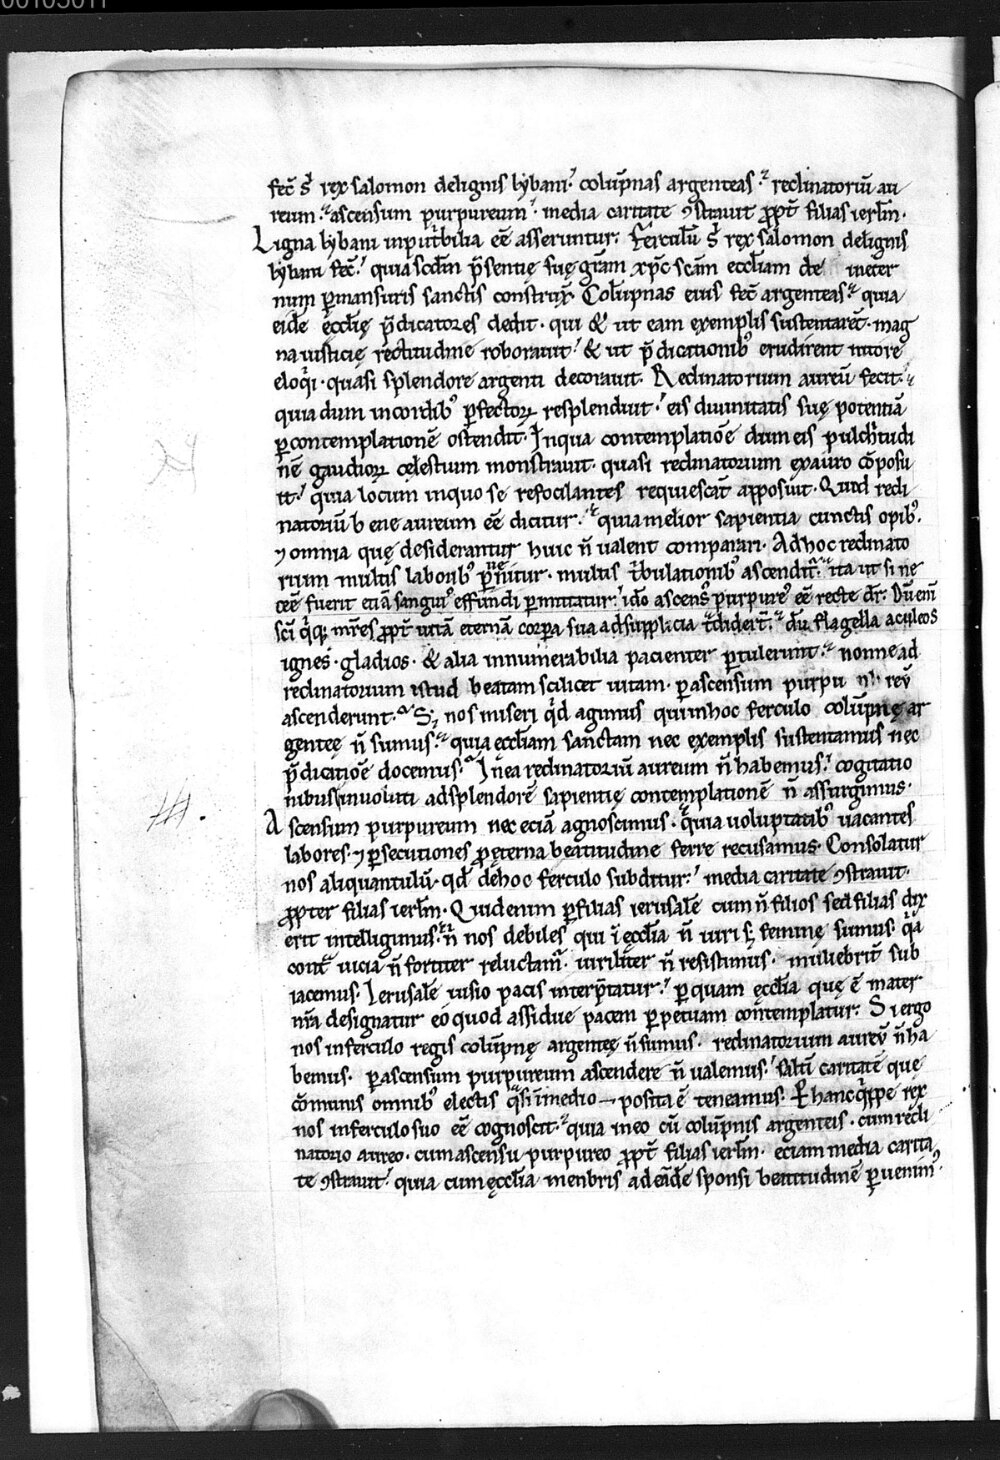 fec̄ s̄ rex salomon delignis lybani .' colūpnas argenteas .' reclinatoriū au
reum .' ascensum purpureum .' media caritate ꝯstrauit ꝓpt̄ filias ierl̄m .
Ligna lybani input̄bilia eē asseruntur : ferculū s̄ rex salomon delignis
lybani fec̄ .' quia scd̄m p̄sentię suę grām xp̄c scām eccl̄iam de ineter
num ꝑmansuris sanctis construx̄ . Colūpnas eius fec̄ argenteas .' quia
eidē ęccl̄ię p̄dicatores dedit . qui & ut eam exemplis sustentarēt . mag
na iusticię rectitudine roborauit .' & ut p̄dicationibꝰ erudirent nitore
eloq̄i . quasi splendore argenti decorauit . Reclinatorium aureū fecit .'
quia dum incordibꝰ ꝑfectoꝝ resplenduit .' eis diuinitatis suę potentiā
ꝑcontemplationē ostendit . Inqua contemplatiōe dum eis pulchritudi
nē gaudioꝝ cęlestium monstrauit . quasi reclinatorium exauro cōposu
it .' quia locum inquo se refocilantes requiescāt apposuit . Quod recli
natoriū bene aureum eē dicitur .' quia melior sapientia cunctis opibꝰ .
⁊ omnia quę desiderantur huic n̄ ualent comparari . Adhoc reclinato
rium multis laboribꝰ ꝑuenitur . multis t̄bulationibꝰ ascendit̄ .' ita ut si ne
cēe fuerit etiā sanguiꝰ effundi ꝑmittatur .' idō ascensꝰ purpureꝰ eē recte dr̄ : Dū eni
sc̄i q̄q; mr̄es ꝓpt̄ uitā eternā corpa sua adsupplicia t̄dider̄t .' dū flagella aculeos
ignes . gladios . & alia innumerabilia pacienter ꝑtulerunt .' nonne ad
reclinatorium istud beatam scilicet uitam . ꝑascensum purpu reū
ascenderunt . S; nos miseri q̄d agimus quiinhoc ferculo colūpnę ar
genteę n̄ sumus .' quia eccl̄iam sanctam nec exemplis sustentamus nec
p̄dicatiōe docemus .' In ea reclinatoriū aureum n̄ habemus .' cogitatio
nibus inuoluti adsplendorē sapientię contemplationē n̄ assurgimus .
Ascensum purpureum nec eciā agnoscimus . quia uoluptatibꝰ uacantes
labores . ⁊ ꝑsecutiones ꝓęterna beatitudine ferre recusamus . Consolatur
nos aliquantulū . qd̄ dehoc ferculo subditur :' media caritate ꝯstrauit .
ꝓpter filias ierl̄m . Quid enim ꝑfilias ierusalē cum n̄ filios sed filias dix
erit intelligimus .' n̄ nos debiles qui ī ęccl̄ia n̄ uiri s; feminę sumus . q̄a
cont̄ uicia n̄ fortiter reluctam̄ . uiriliter n̄ resistimus . muliebrit̄ sub
iacemus . Ierusalē uisio pacis interp̄tatur .' ꝑ quam ęccl̄ia quę ē mater
nr̄a designatur eo quod assidue pacem ꝑpetuam contemplatur : Si ergo
nos inferculo regis colūpnę argenteę n̄ sumus . reclinatorium aureū n̄ ha
bemus . ꝑascensum purpureum ascendere n̄ ualemus .' saltī caritatē quę
cōmunis omnibꝰ electis q̄si īmedio posita ē teneamus . & hanc q̄ppe rex
nos inferculo suo eē cognoscit .' quia ineo cū colūpnis argenteis . cum recli
natorio aureo . cum ascensu purpureo ꝓpt̄ filias ierl̄m . eciam media carita
te ꝯstrauit .' quia cum ęccl̄ia menbris ad eādē sponsi beatitudinē ꝑuenimꝰ .